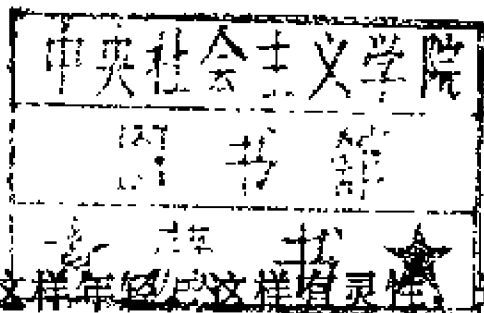 中央社会主义学院
图书馆
藏书★
这样年轻,这样有灵性